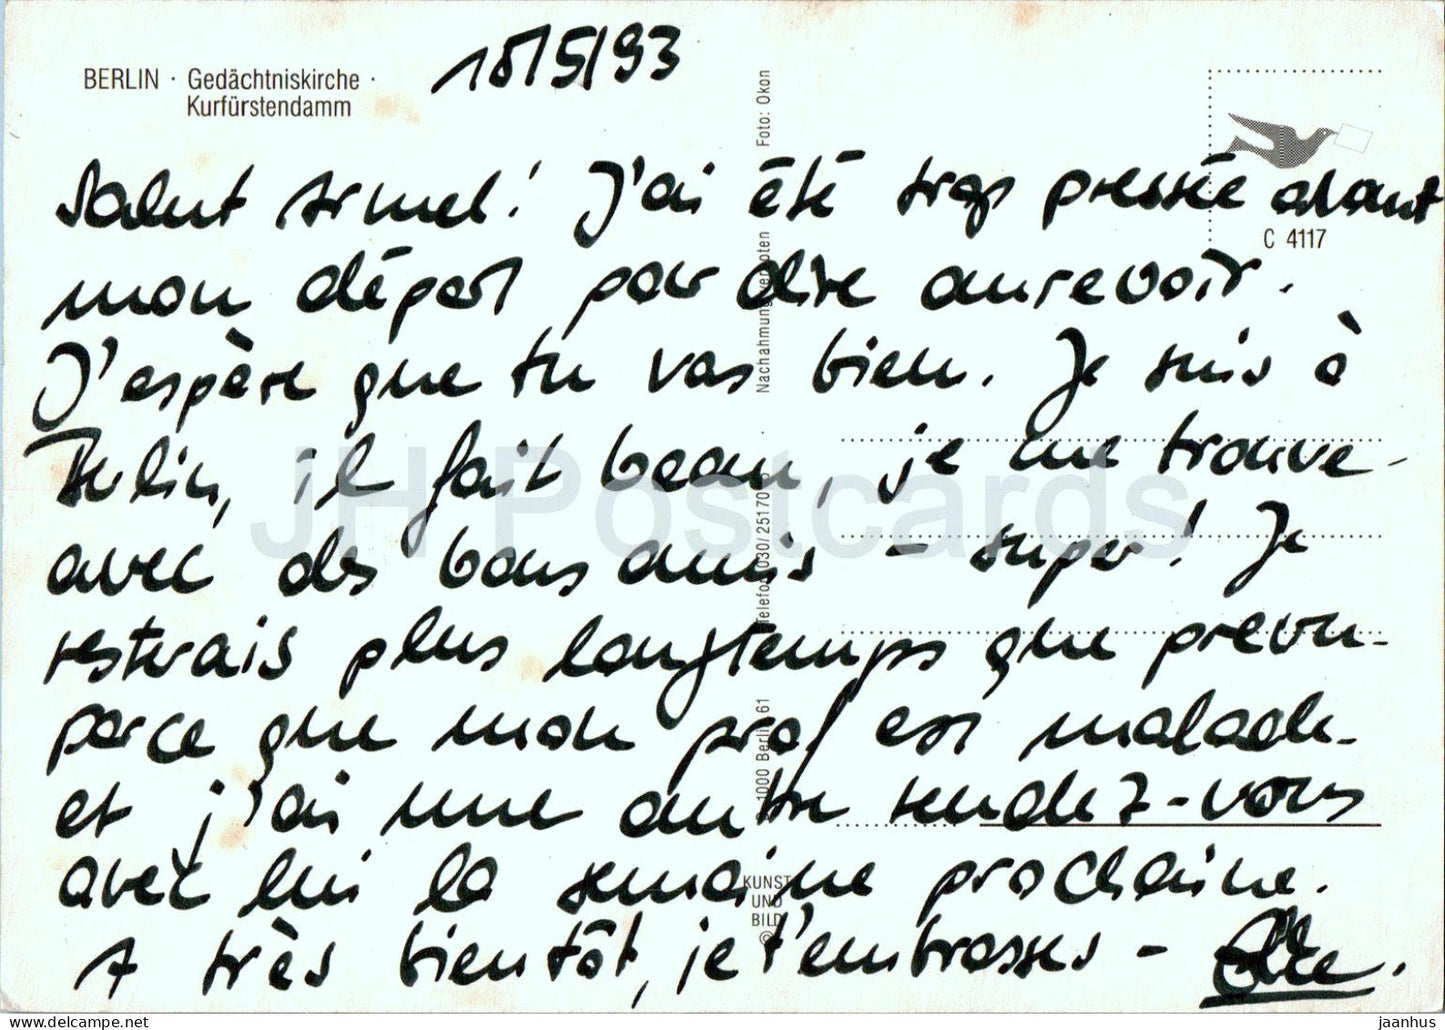 BERLIN · Gedächtniskirche ·
Kurfürstendamm
18/5/93
Salut Armel! J'ai été trop pressée avant
mon départ par dire aurevoir.
J'espère que tu vas bien. Je suis à
Berlin, il fait beau, je me trouve-
avec des bons amis - super! Je
resterais plus longtemps que prevu-
parce que mon prof est malade-
et j'ai une autre rendez-vous
avec lui la semaine prochaine.
A très bientôt, je t'embrasses -
C 4117
Foto: Okon
Nachahmung verboten
Telefon 030/25170
1000 Berlin 61
KUNST
UND
BILD
©
JH Postcards
eu.jhpostcards.com
jaanhus